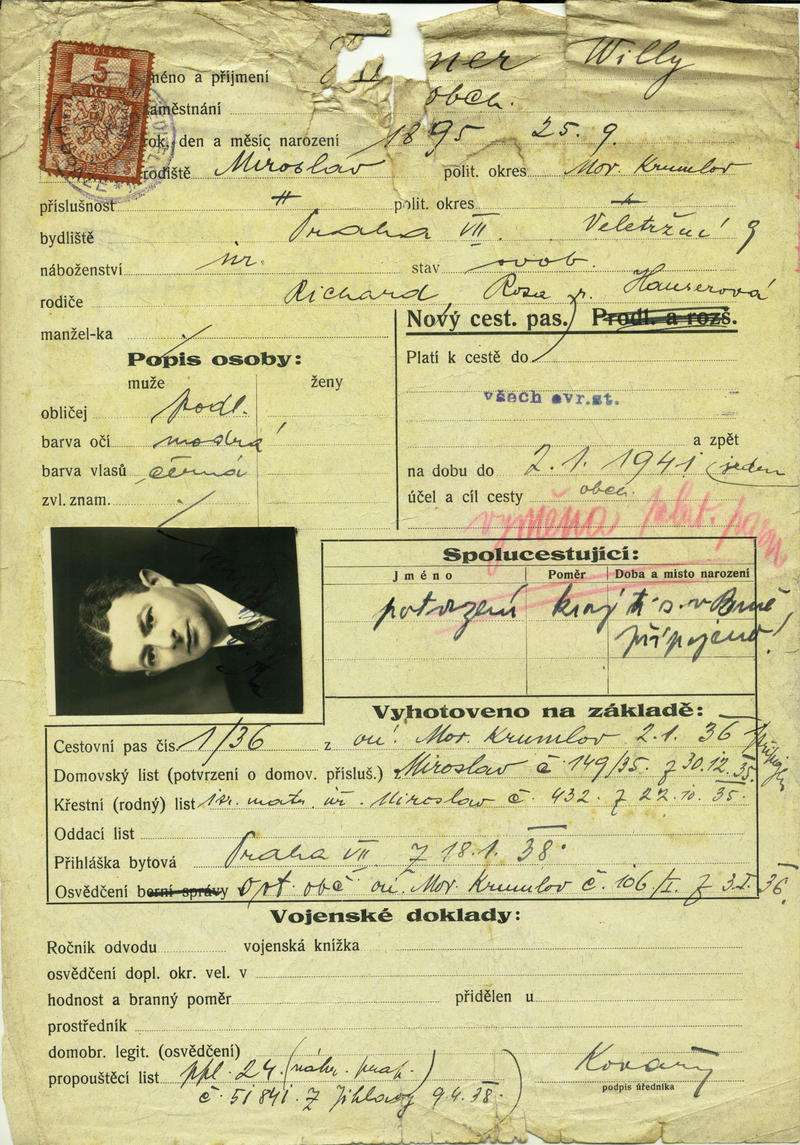 KOLEK
5
Kč
jméno a příjmení ner Willy
zaměstnání obch.
rok, den a měsíc narození 1895 25. 9.
rodiště Miroslav polit. okres Mor. Krumlov
příslušnost " polit. okres "
bydliště Praha VII. Veletržní 9
náboženství isr. stav svob.
rodiče Richard, Rosa r. Hauserová
manžel-ka
Nový cest. pas. Prodl. a rozš.
Popis osoby:
muže ženy
Platí k cestě do
všech evr.st.
obličej podl.
barva očí modrá
a zpět
barva vlasů černá
na dobu do 2. 1. 1941 (jeden
zvl. znam.
účel a cíl cesty obch.
výměna plat. pasu
Spolucestující:
jméno Poměr Doba a místo narození
potvrzení kraj. v Brně
připojeno!
Vyhotoveno na základě:
Cestovní pas čís. 1/36 z oú. Mor. Krumlov 2. 1. 36
Domovský list (potvrzení o domov. přísluš.) Miroslav č. 149/35. z 30. 12. 35.
Křestní (rodný) list isr. matr. úř. Miroslav č. 432. z 22. 10. 35.
Oddací list
Přihláška bytová Praha VII z 18. 1. 38.
Osvědčení berní správy obč. oú. Mor. Krumlov č. 106/I. z 3. I. 36.
Vojenské doklady:
Ročník odvodu vojenská knížka
osvědčení dopl. okr. vel. v
hodnost a branný poměr přidělen u
prostředník
domobr. legit. (osvědčení)
propouštěcí list ppl. 24. (náhr.
č. 51841. z Jihlavy 9. 4. 38.)
podpis úředníka